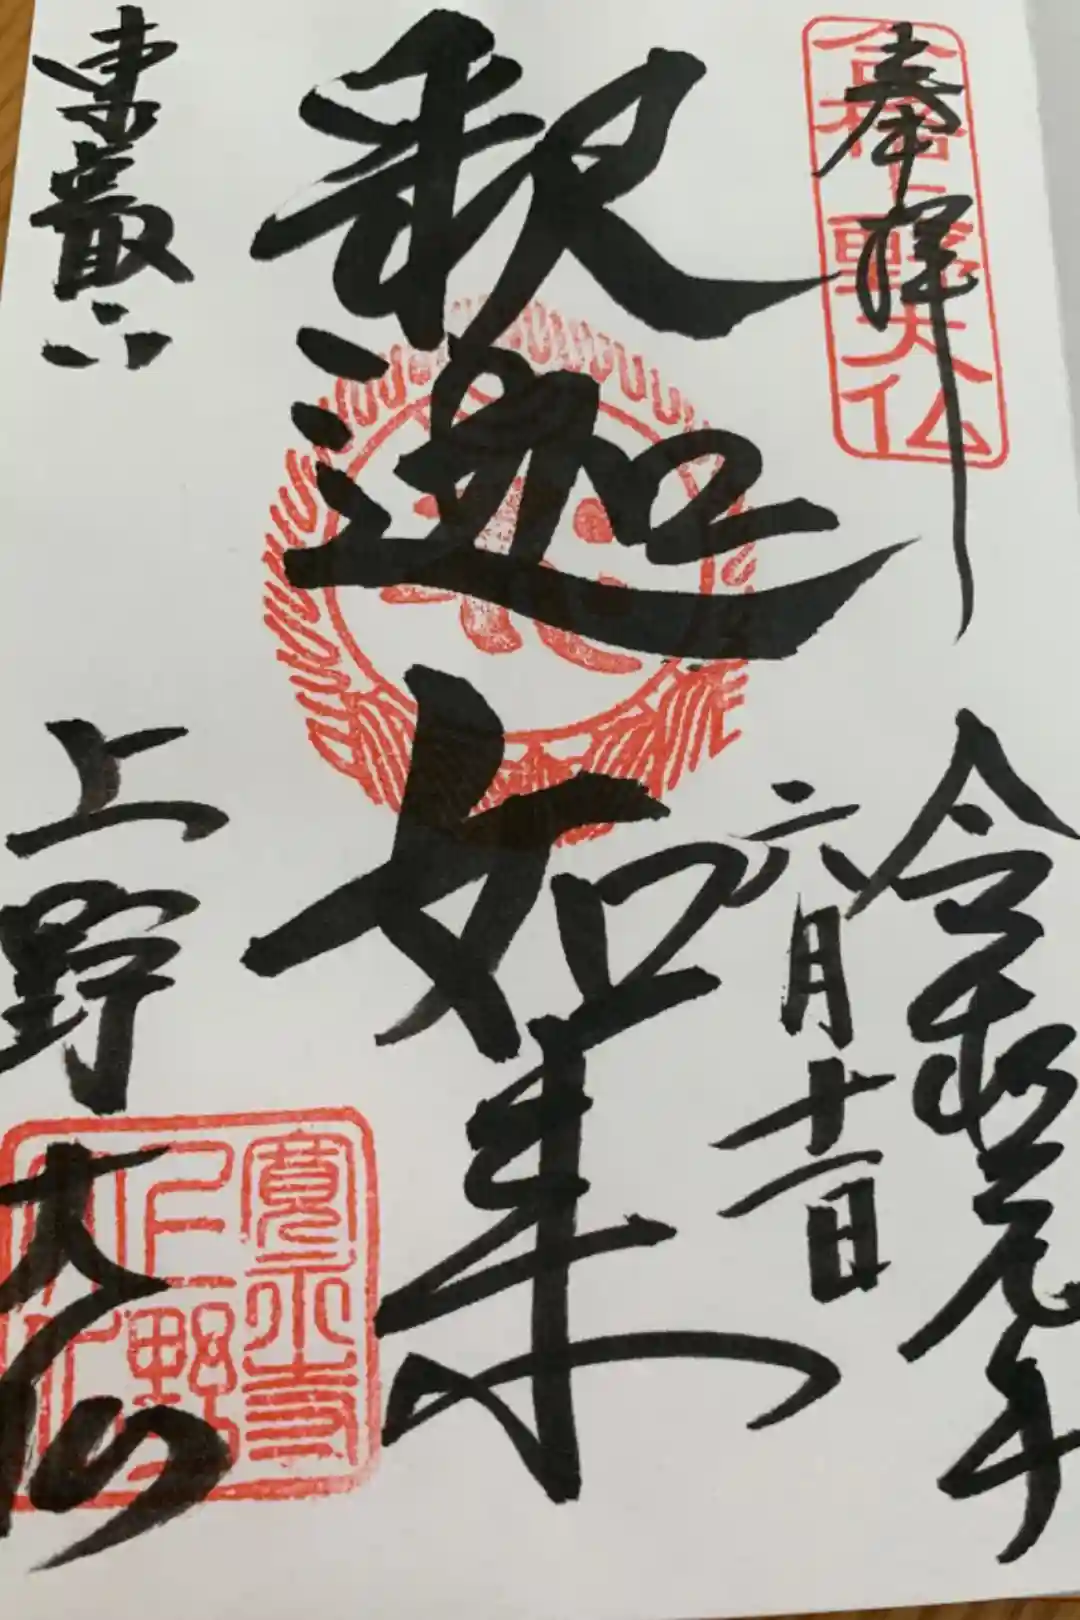 奉拝
合格上野大仏
令和元年
六月十二日
釈迦如来
東叡山
上野大仏
寛永寺
上野
大仏